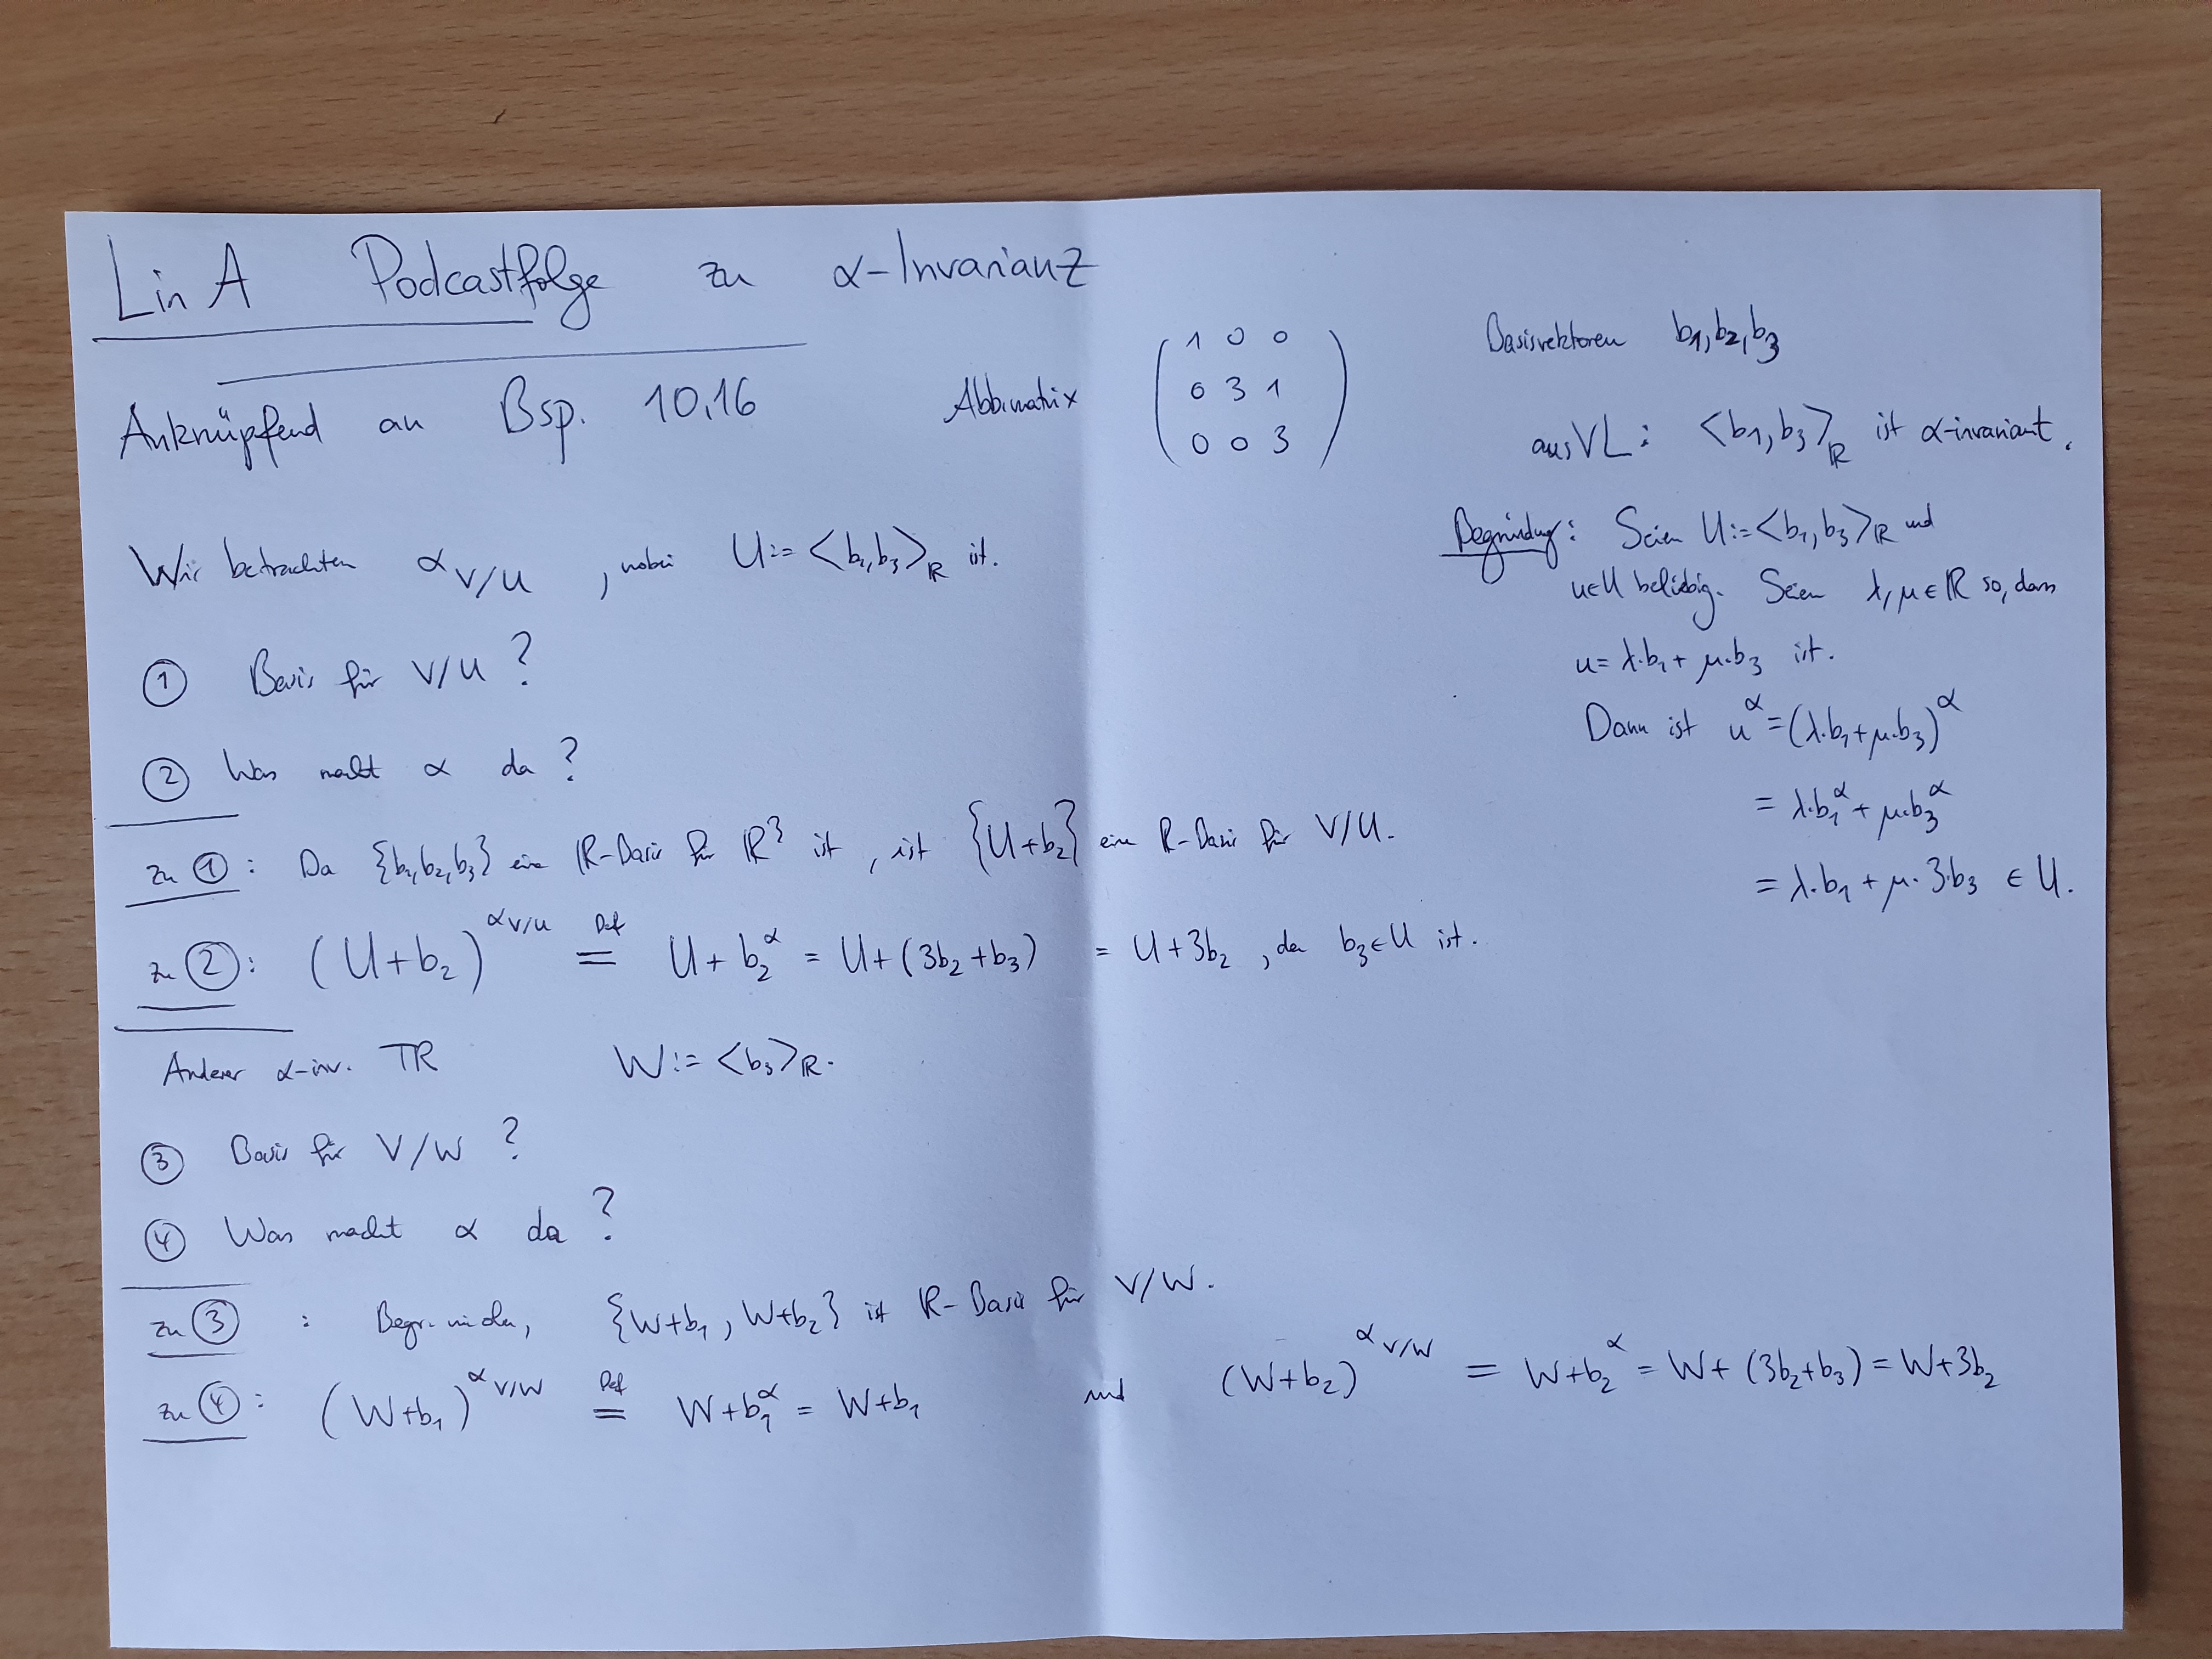 Lin A Podcastfolge zu α-Invarianz
Anknüpfend an Bsp. 10.16
Abb.matrix
1 0 0
0 3 1
0 0 3
Basisvektoren b₁, b₂, b₃
aus VL: <b₁, b₃>_ℝ ist α-invariant.
Begründung: Seien U := <b₁, b₃>_ℝ und
u∈U beliebig. Seien λ, μ ∈ ℝ so, dass
u = λ·b₁ + μ·b₃ ist.
Dann ist u^α = (λ·b₁ + μ·b₃)^α
= λ·b₁^α + μ·b₃^α
= λ·b₁ + μ·3·b₃ ∈ U.
Wir betrachten α_V/U, wobei U := <b₁, b₃>_ℝ ist.
① Basis für V/U ?
② Was macht α da ?
zu ①: Da {b₁, b₂, b₃} eine ℝ-Basis für ℝ³ ist, ist {U+b₂} eine ℝ-Basis für V/U.
zu ②: (U+b₂)^α_V/U =^Def U + b₂^α = U + (3b₂ + b₃) = U + 3b₂, da b₃∈U ist.
Anderer α-inv. TR W := <b₃>_ℝ.
③ Basis für V/W ?
④ Was macht α da ?
zu ③ : Begr. {W+b₁, W+b₂} ist ℝ-Basis für V/W.
zu ④: (W+b₁)^α_V/W =^Def W + b₁^α = W + b₁ und (W+b₂)^α_V/W = W + b₂^α = W + (3b₂ + b₃) = W + 3b₂